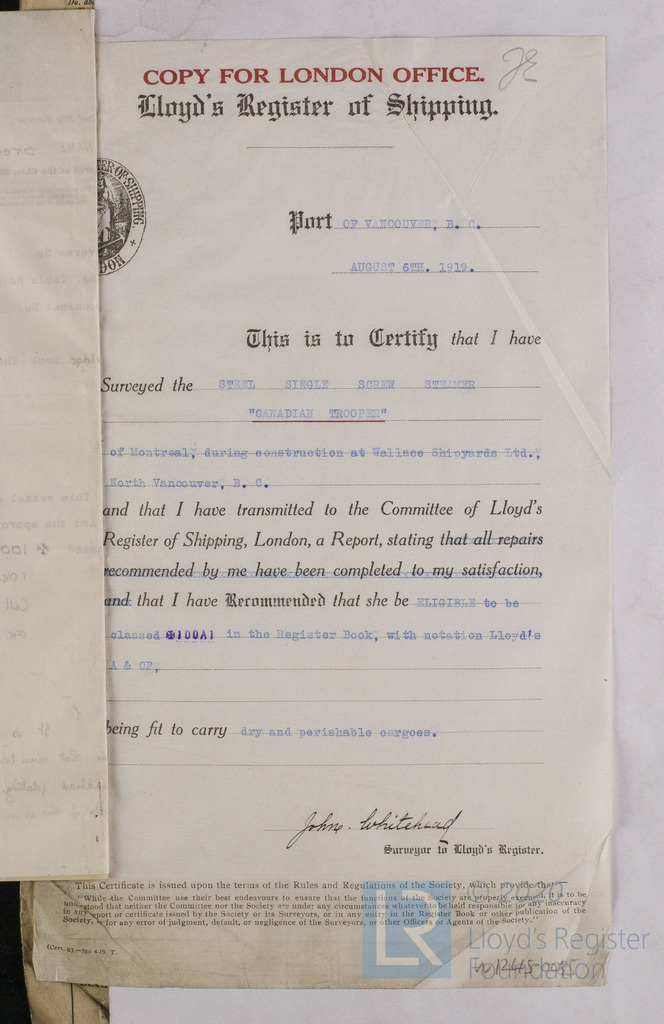 COPY FOR LONDON OFFICE.
JE
Lloyd's Register of Shipping.
Port OF VANCOUVER, B. C.
AUGUST 6TH. 1919.
This is to Certify that I have
Surveyed the STEEL SINGLE SCREW STEAMER
"CANADIAN TROOPER"
of Montreal, during construction at Wallace Shipyards Ltd.,
North Vancouver, B. C.
and that I have transmitted to the Committee of Lloyd's
Register of Shipping, London, a Report, stating that all repairs
recommended by me have been completed to my satisfaction,
and that I have Recommended that she be ELIGIBLE to be
classed ✠100A1 in the Register Book, with notation Lloyd's
A & CP,
being fit to carry dry and perishable cargoes.
John. Whitehead
Surveyor to Lloyd's Register.
This Certificate is issued upon the terms of the Rules and Regulations of the Society, which provide that:—
"While the Committee use their best endeavours to ensure that the functions of the Society are properly executed, it is to be
understood that neither the Committee nor the Society are under any circumstances whatever to be held responsible for any inaccuracy
in any report or certificate issued by the Society or its Surveyors, or in any entry in the Register Book or other publication of the
Society, or for any error of judgment, default, or negligence of the Surveyors, or other Officers or Agents of the Society."
LR
Lloyd's Register
Foundation